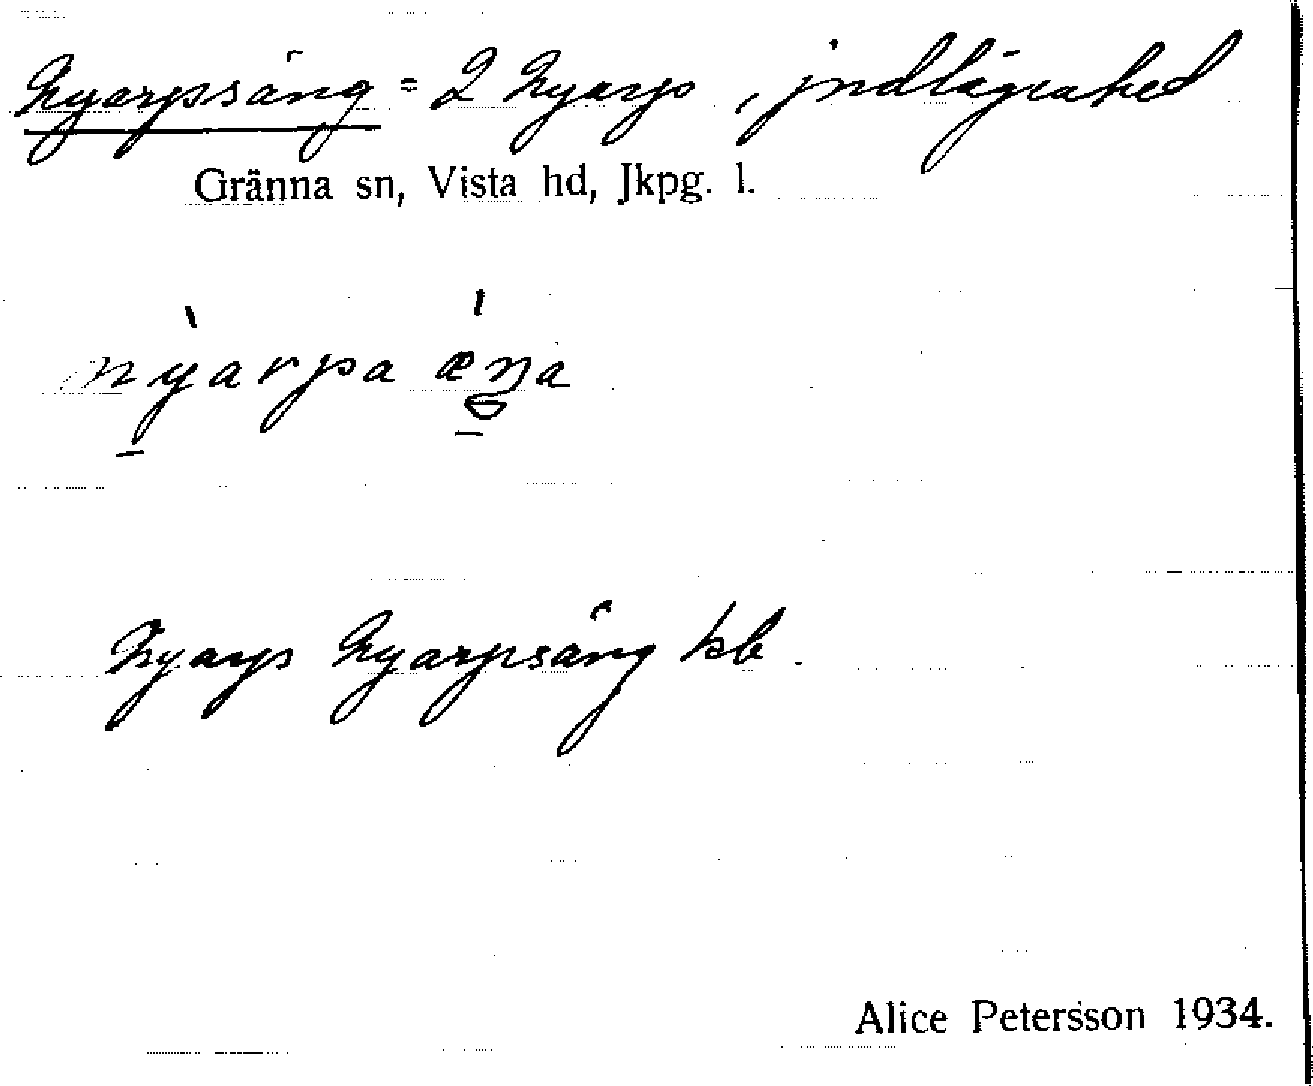 Nyarpsäng = 2 Nyarp, jndlägenhed
Gränna sn, Vista hd, Jkpg. l.
nyarpa æŋa
Nyarps Nyarpsäng kb.
Alice Petersson 1934.